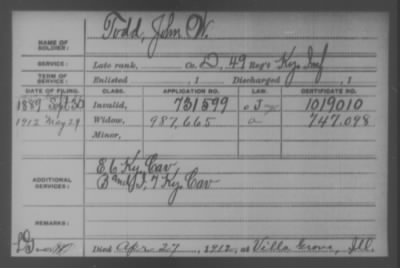 NAME OF SOLDIER: Todd, John W.
SERVICE: Late rank, Co. D, 49 Reg't Ky. Inf
TERM OF SERVICE: Enlisted , 1 Discharged , 1
DATE OF FILING. CLASS. APPLICATION NO. LAW. CERTIFICATE NO.
1889 Sept 30 Invalid, 731599 J 1019010
1912 May 29 Widow, 987,665 a 747,098
Minor,
ADDITIONAL SERVICES: E 6 Ky. Cav
B and I, 7 Ky. Cav
REMARKS:
Died Apr 27, 1912, at Villa Grove, Ill.